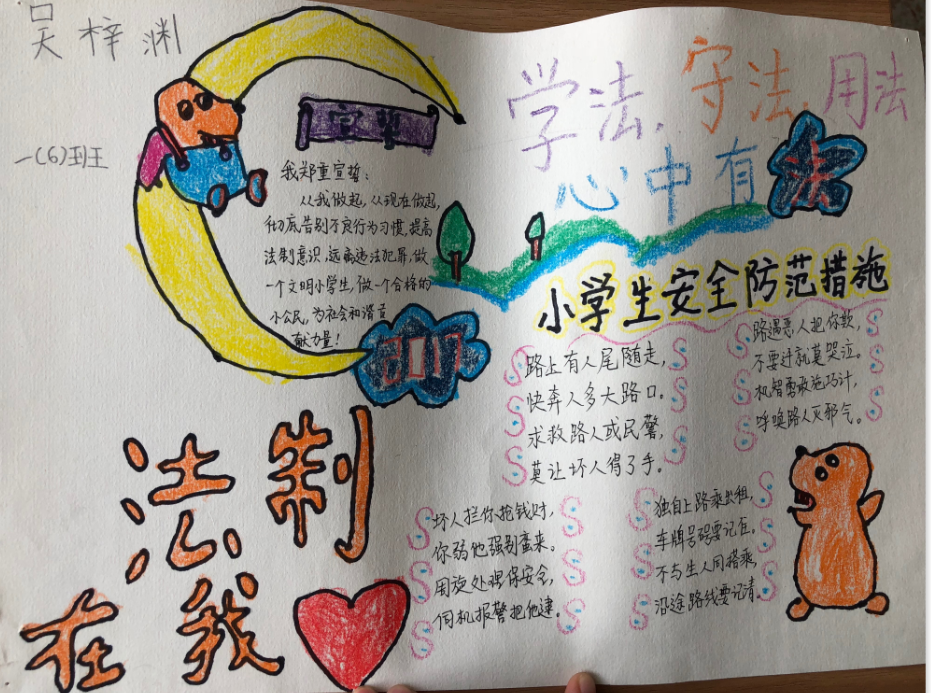 吴梓渊
一(6)班
宣誓
我郑重宣誓：
从我做起，从现在做起，
彻底告别不良行为习惯，提高
法制意识，远离违法犯罪，做
一个文明小学生，做一个合格的
小公民，为社会和谐
献力量！
法制
在我
学法，守法，用法
心中有法
小学生安全防范措施
路上有人尾随走，
快奔人多大路口。
求救路人或民警，
莫让坏人得了手。
路遇恶人把你欺，
不要讨就莫哭泣。
机智勇敢施巧计，
呼唤路人灭邪气。
坏人拦你抢钱时，
你弱他强别蛮来。
周旋处理保安全，
伺机报警把他逮。
独自上路乘出租，
车牌号码要记住。
不与生人同搭乘，
沿途路线要记清。